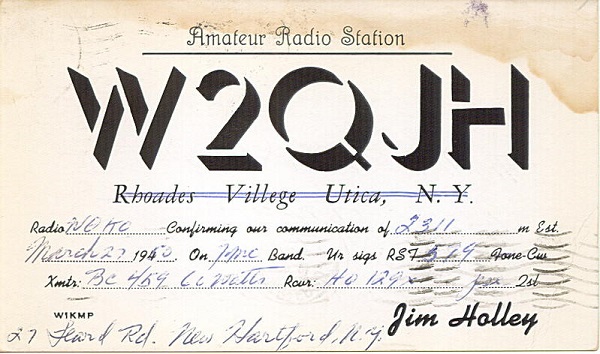 Amateur Radio Station
W2QJH
Rhoades Villege Utica, N.Y.
Radio Confirming our communication of 2311 m Est.
March 27 1950. On Band. Ur sigs RST 519 Fone-Cw
Xmtr: Bc 459 Watts Rcvr: Ho 129x Jim 2st
W1KMP
Jim Holley
27 Rd. New Hartford, N.Y.